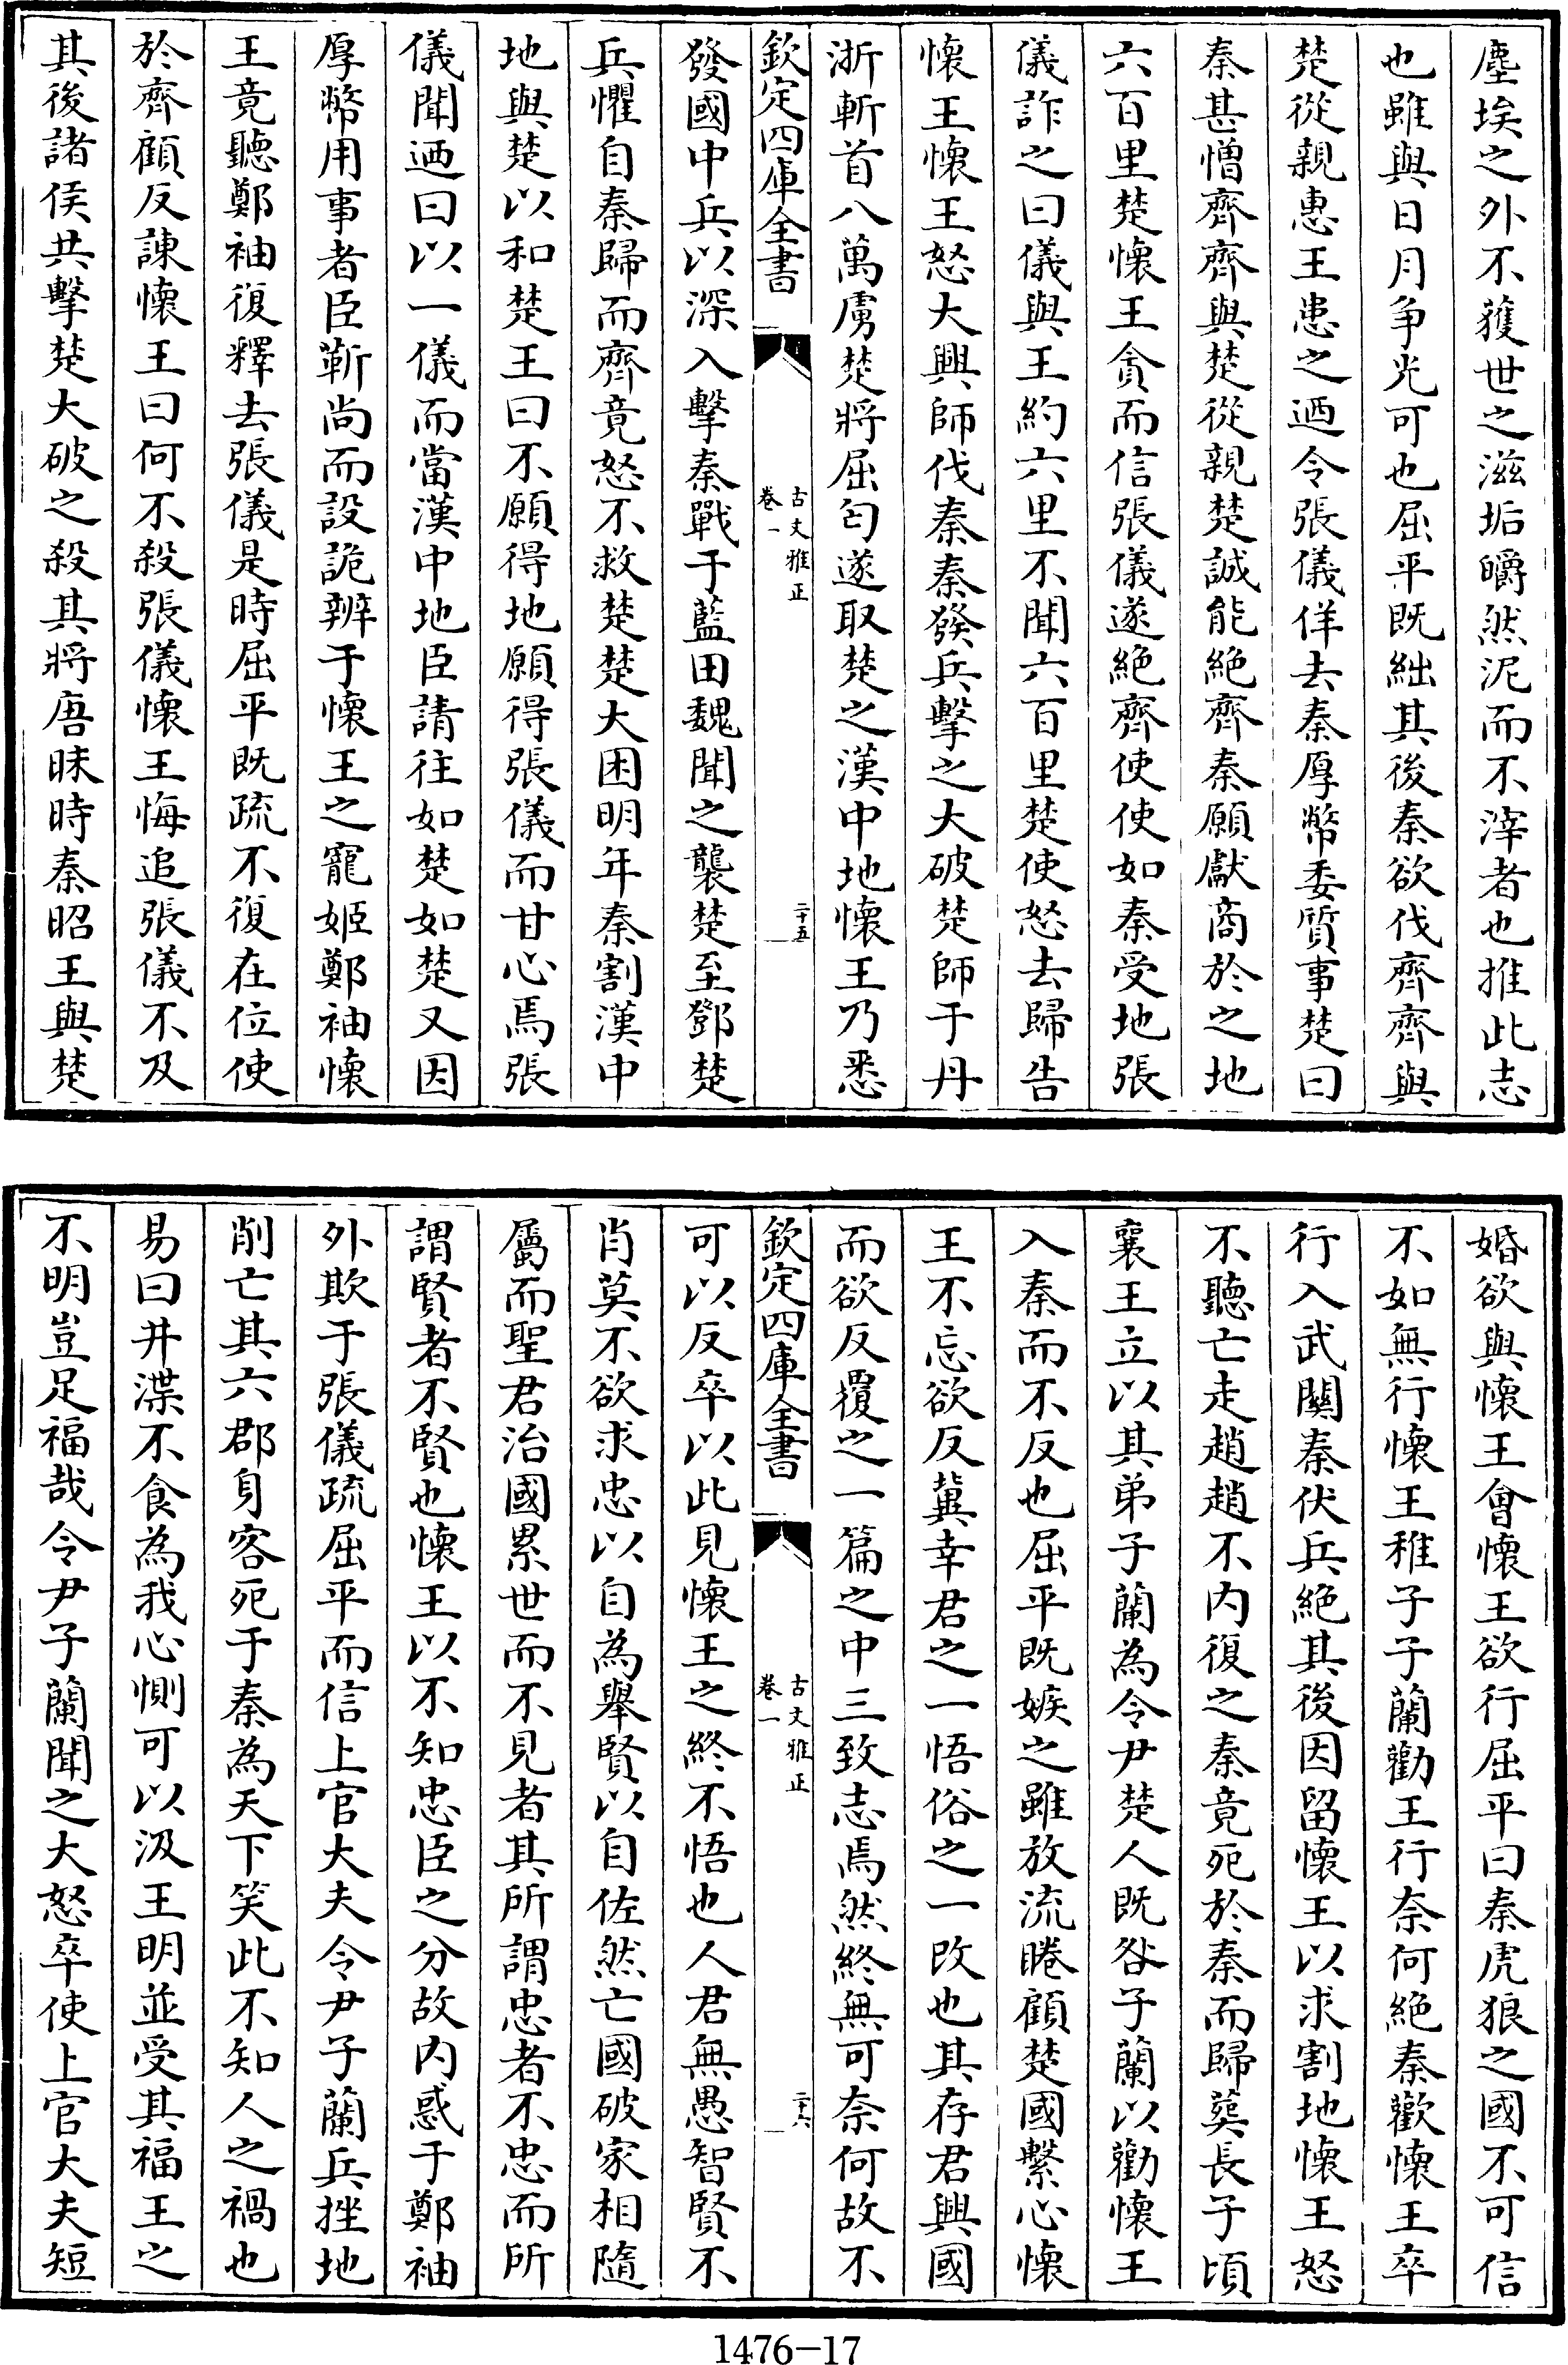 塵埃之外不獲世之滋垢皭然泥而不滓者也推此志
也雖與日月争光可也屈平既絀其後秦欲伐齊齊與
楚從親惠王患之迺令張儀佯去秦厚幣委質事楚曰
秦甚憎齊齊與楚從親楚誠能絶齊秦願獻商於之地
六百里楚懷王貪而信張儀遂絶齊使使如秦受地張
儀詐之曰儀與王約六里不聞六百里楚使怒去歸告
懷王懷王怒大興師伐秦秦發兵擊之大破楚師于丹
浙斬首八萬虜楚將屈匄遂取楚之漢中地懷王乃悉
欽定四庫全書
古文雅正
卷一
二十五
發國中兵以深入擊秦戰于藍田魏聞之襲楚至鄧楚
兵懼自秦歸而齊竟怒不救楚楚大困明年秦割漢中
地與楚以和楚王曰不願得地願得張儀而甘心焉張
儀聞迺曰以一儀而當漢中地臣請往如楚如楚又因
厚幣用事者臣靳尚而設詭辨于懷王之寵姬鄭袖懷
王竟聽鄭袖復釋去張儀是時屈平既疏不復在位使
於齊顧反諫懷王曰何不殺張儀懷王悔追張儀不及
其後諸侯共擊楚大破之殺其將唐眛時秦昭王與楚
婚欲與懷王會懷王欲行屈平曰秦虎狼之國不可信
不如無行懷王稚子子蘭勸王行奈何絶秦歡懷王卒
行入武關秦伏兵絶其後因留懷王以求割地懷王怒
不聽亡走趙趙不内復之秦竟死於秦而歸葬長子頃
襄王立以其弟子蘭為令尹楚人既咎子蘭以勸懷王
入秦而不反也屈平既嫉之雖放流睠顧楚國繫心懷
王不忘欲反冀幸君之一悟俗之一改也其存君興國
而欲反覆之一篇之中三致志焉然終無可奈何故不
欽定四庫全書
古文雅正
卷一
二十六
可以反卒以此見懷王之終不悟也人君無愚智賢不
肖莫不欲求忠以自為舉賢以自佐然亡國破家相隨
屬而聖君治國累世而不見者其所謂忠者不忠而所
謂賢者不賢也懷王以不知忠臣之分故内惑于鄭袖
外欺于張儀疏屈平而信上官大夫令尹子蘭兵挫地
削亡其六郡身客死于秦為天下笑此不知人之禍也
易曰井渫不食為我心惻可以汲王明並受其福王之
不明豈足福哉令尹子蘭聞之大怒卒使上官大夫短
1476-17